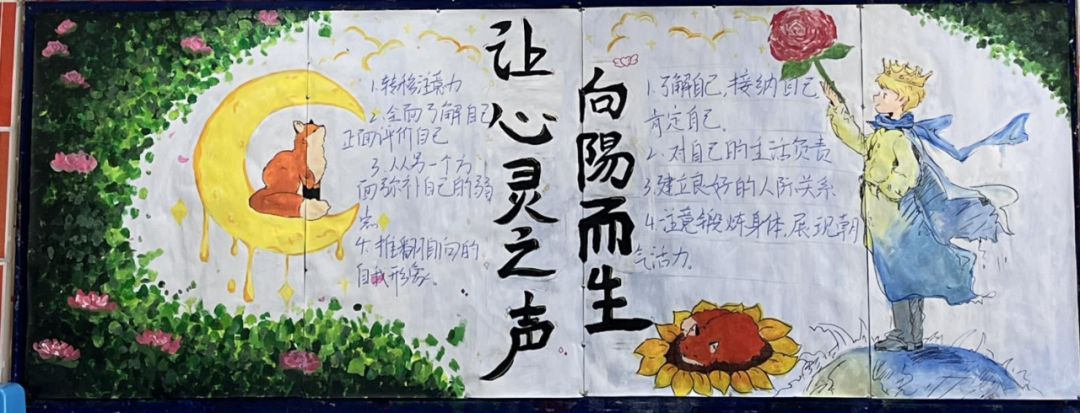 让心灵之声
向陽而生
1.转移注意力
2.全面了解自己
正面评价自己
3.从另一个方
面弥补自己的弱
点
4.推翻
自我形象。
1.了解自己,接纳自己,
肯定自己.
2.对自己的生活负责
3.建立良好的人际关系
4.注意锻炼身体,展现朝
气活力.